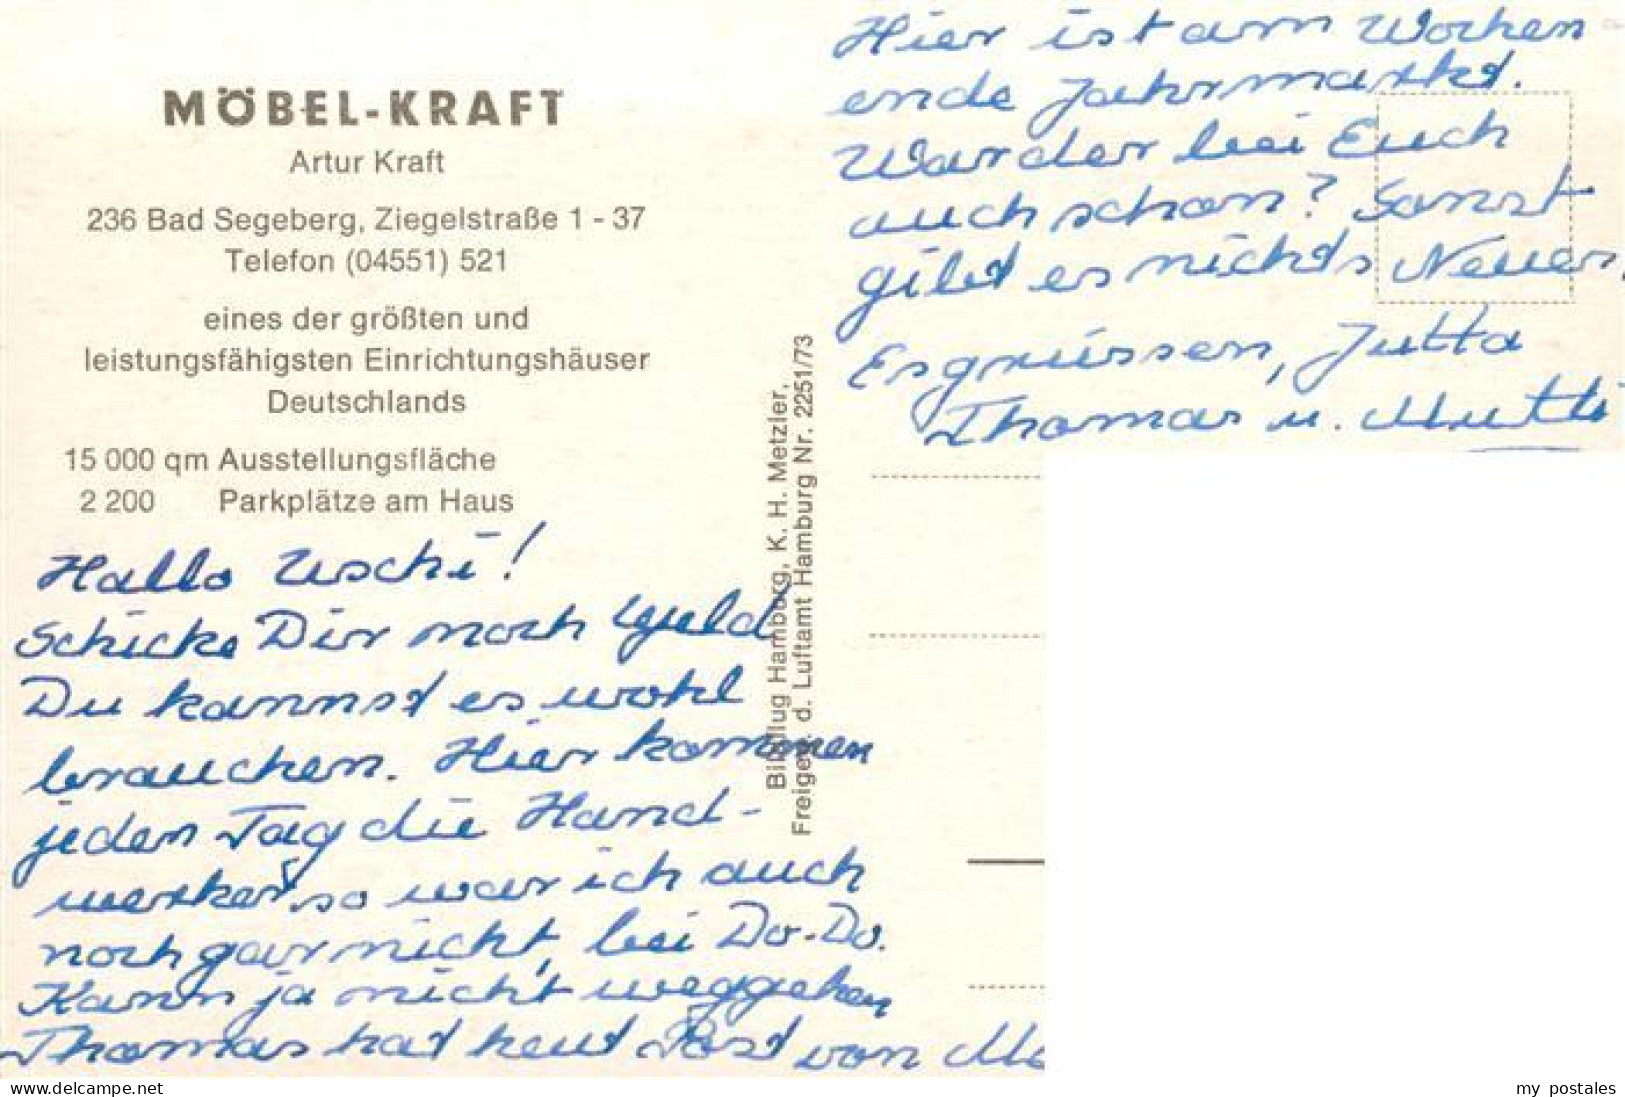 MÖBEL-KRAFT
Artur Kraft
236 Bad Segeberg, Ziegelstraße 1 - 37
Telefon (04551) 521
eines der größten und
leistungsfähigsten Einrichtungshäuser
Deutschlands
15 000 qm Ausstellungsfläche
2 200 Parkplätze am Haus
Hallo Uschi!
Schicke Dir noch Geld
Du kannst es wohl
brauchen. Hier kommen
jeden Tag die Hand-
werker, so war ich auch
noch gar nicht, bei Do-Do.
Kann ja nicht weggehen
Thomas hat heut Post von
Bildflug Hamburg, K. H. Metzler,
Freigeg. d. Luftamt Hamburg Nr. 2251/73
Hier ist am Wochen
ende Jahrmarkt.
War der bei Euch
auch schon? Sonst
gibt es nichts Neues.
Es grüssen, Jutta
Thomas u. Mutti
www.delcampe.net
my_postales